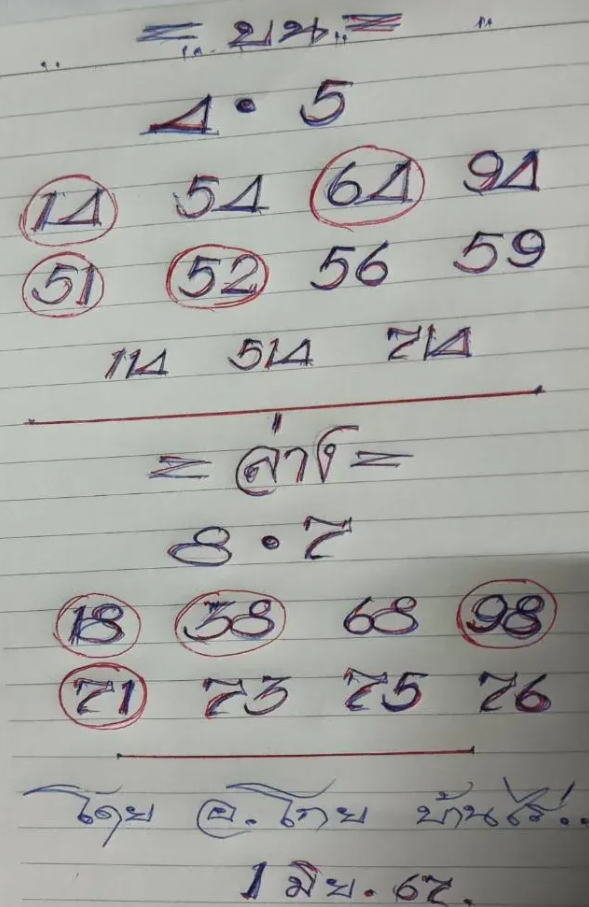 = บน =
4 • 5
14 54 64 94
51 52 56 59
114 514 714
= ล่าง =
8 • 7
18 38 68 98
71 73 75 76
โดย อ. ไทย บ้านไร่..
1 มิย. 67.